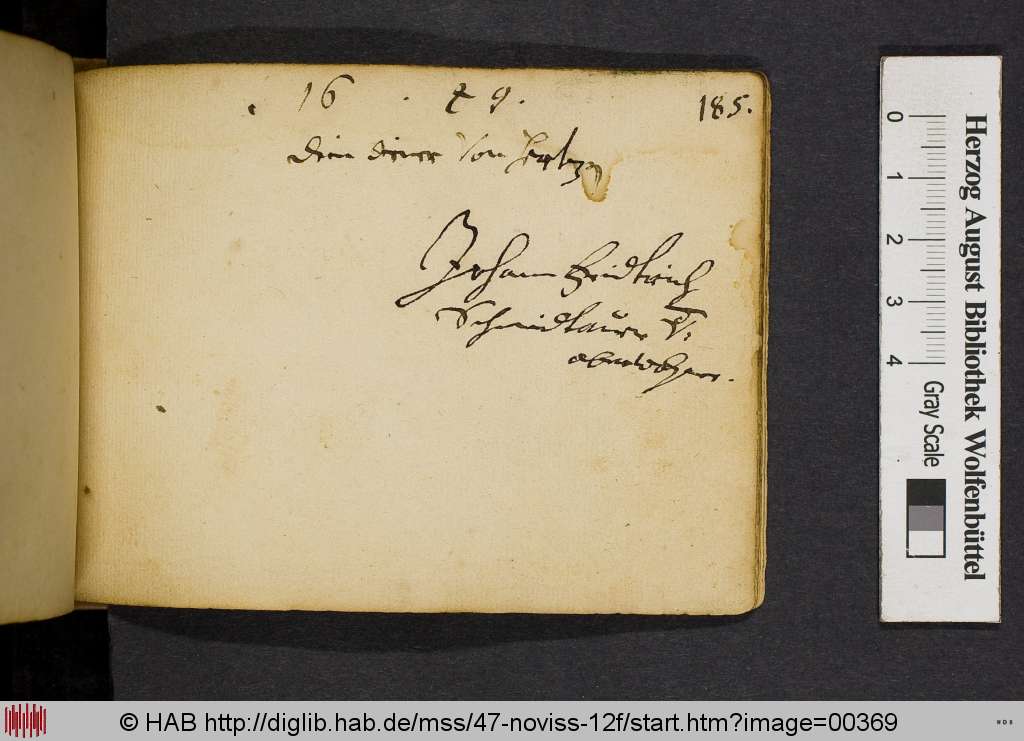 16 . 49. 185.
dein diener Von hertzen
Johann
Schmidlauer V:
0 1 2 3 4
Herzog August Bibliothek Wolfenbüttel
Gray Scale
© HAB http://diglib.hab.de/mss/47-noviss-12f/start.htm?image=00369
HAB